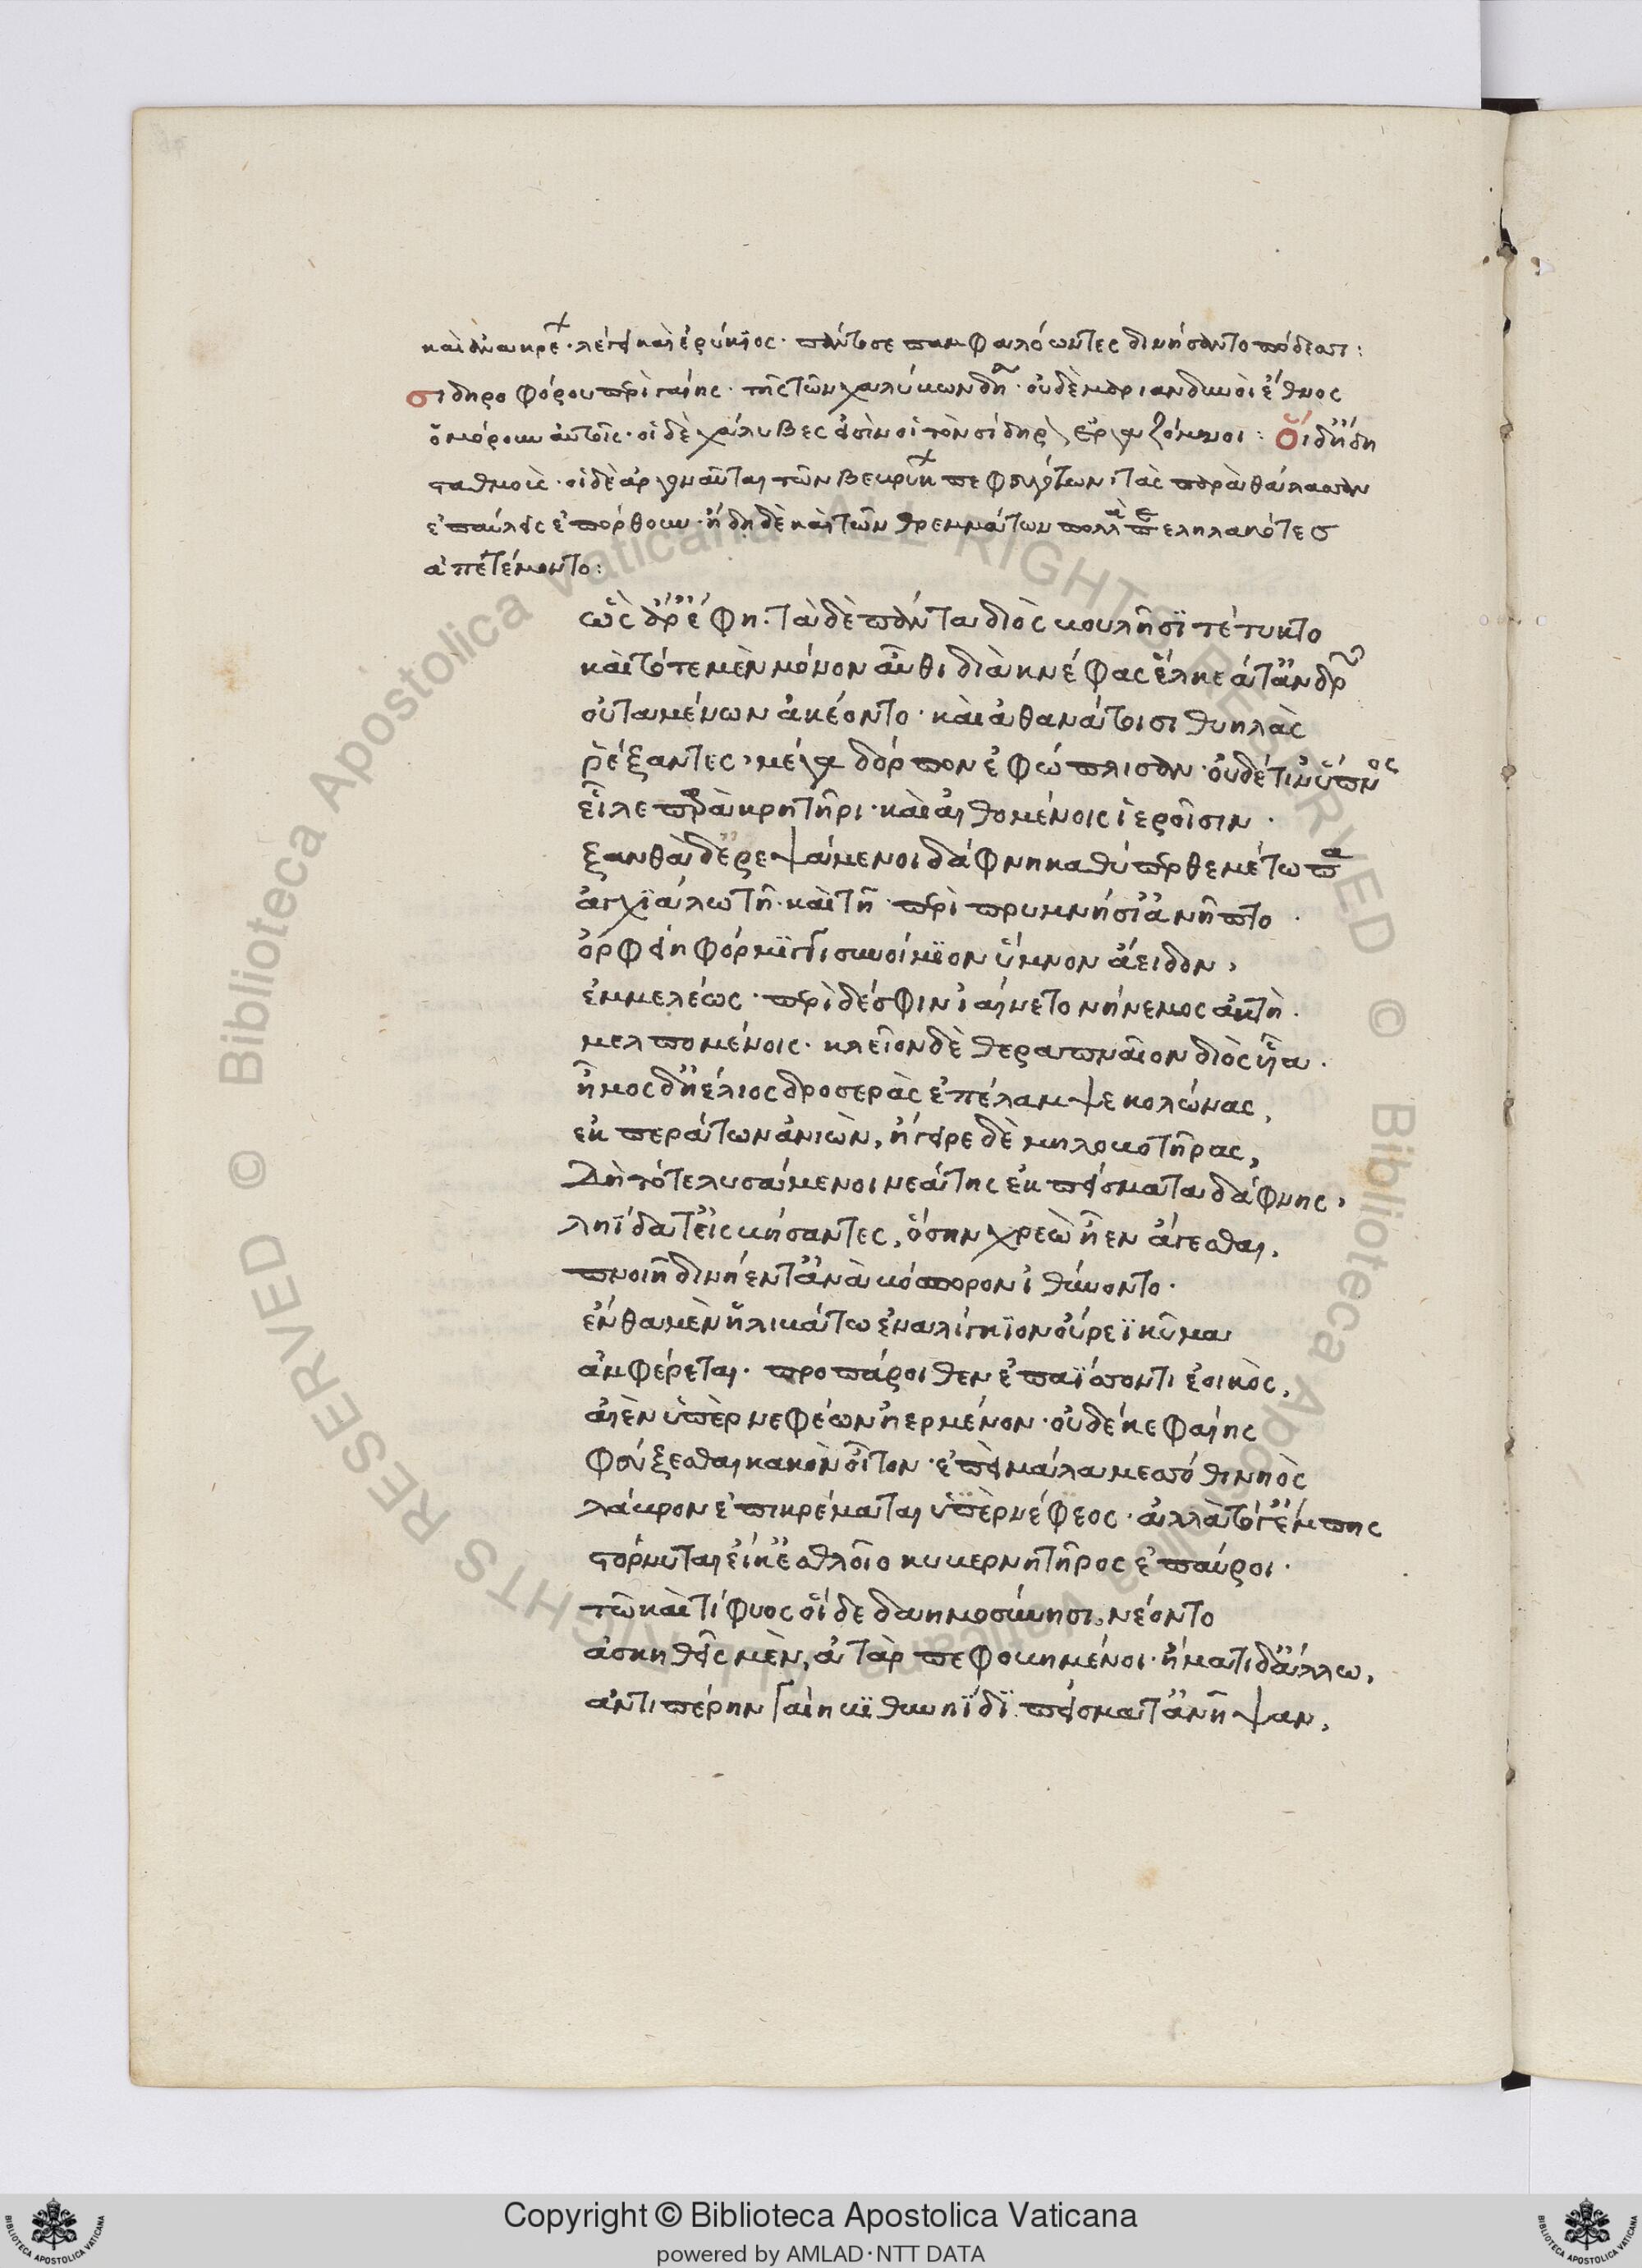 καὶ ἀνακρε χ · λέγει καὶ ἐρύκιος · πάντοσε παμφαλόωντες δινήσαντο πόδεσσι :
σιδηροφόρου περὶ γαίης · τῆς τῶν χαλύκων δη · οὐδὲ μαριανδυνοὶ ἔθνος
ὅμορουν αὐτοῖς · οἱ δὲ χάλυβες εἰσὶν οἱ τὸν σίδηρον ἐργαζόμενοι : Οἵ δ' ἤδη
σταθμούς · οἱ δὲ ἀργοναῦται τῶν βεκρύκ πεφευγότων, τὰς παρὰ θάλασσαν
ἐπαύλεις ἐπόρθουν · ἤδη δὲ καὶ τῶν θρεμμάτων πολλὰ περιεληλακότες
ἀπετέμοντο :
ὣς ἄρ' ἔφη · τὰ δὲ πάντα διὸς κουλῆσϊ τέτυκτο
καὶ τότε μὲν μόνον αὖθι διὰ κνέφας ἕλκεά τ' ἀνδρῶν
οὐταμένων ἀκέοντο · καὶ ἀθανάτοισι θυηλὰς
ῥέξαντες, μέγα δόρπον ἐφώπλισαν · οὐδέ τιν' ὕπνος
εἷλε παρὰ κρητῆρι · καὶ αἰθομένοις ἱεροῖσιν ·
ξανθὰ δ' ἐρεψάμενοι δάφνη καθύπερθε μέτωπα
ἀγχϊάλω τῆ · καὶ τῆ περὶ πρυμνήσι' ἀνῆπτο ·
ὀρφείη φόρμιγγι συνοίμϊον ὕμνον ἄειδον,
ἐμμελέως · περὶ δέ σφιν ἰαίνετο νήνεμος ἀκτὴ ·
μελπομένοις · κλεῖον δὲ θεραπναῖον διὸς ἧα ·
ἦμος δ' ἠέλιος δροσερὰς ἐπέλαμψε κολώνας,
ἐκ περάτων ἀνιὼν, ἤγειρε δὲ μηλοκοτῆρας,
Δὴ τότε λυσάμενοι νεάτης ἐκ πείσματα δάφνης,
ληΐδα τ' εἰσκήσαντες, ὅσην χρεὼ ἦεν ἄγεσθαι,
πνοιῆ δινήεντ' ἀνὰ κόσπορον ἰθύνοντο ·
ἔνθα μὲν ἠλικάτω ἐναλίγκϊον οὔρεϊ κῦμα
ἀμφέρεται · προπάροιθεν ἐπαΐσσοντι ἐοικὸς,
αἰὲν ὑπὲρ νεφέων ἠερμένον · οὐδέ κε φαίης
φεύξεσθαι κακὸν οἶτον · ἐπεὶ μάλα μεσσόθι νηὸς
λάκρον ἐπικρέμαται ὑπὲρ νέφεος · ἀλλὰ τόγ' ἔμπης
στόρνυται εἴ κ' ἐσθλοῖο κυκερνητῆρος ἐπαύροι ·
τῶ καὶ τίφυος οἵδε δαημοσύνησι, νέοντο
ἀσκηθεῖς μὲν, ἀτὰρ πεφοκημένοι · ἤματι δ' ἄλλω,
ἀντιπέρην γαίη κϊθυνηΐδϊ πείσματ' ἀνῆψαν,
Copyright © Biblioteca Apostolica Vaticana
powered by AMLAD·NTT DATA